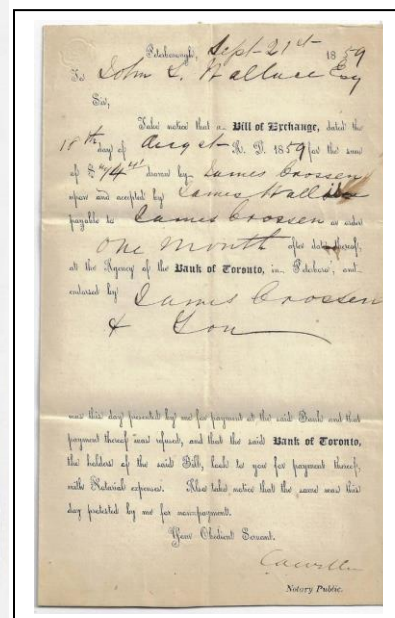 Peterborough, Sept 21st 1859
To John L. Wallace Esq
Sir,
Take notice that a Bill of Exchange, dated the
18th day of August A. D. 1859 for the sum
of $ drawn by James Crossen
upon and accepted by James Wallace
payable to James Crossen or order
One Month after date thereof,
at the Agency of the Bank of Toronto, in Peterboro, and
endorsed by James Crossen
& You
was this day presented by me for payment at the said Bank and that
payment thereof was refused, and that the said Bank of Toronto,
the holders of the said Bill, look to you for payment thereof,
with Notarial expenses. Also take notice that the same was this
day protested by me for non-payment.
Your Obedient Servant.
Notary Public.